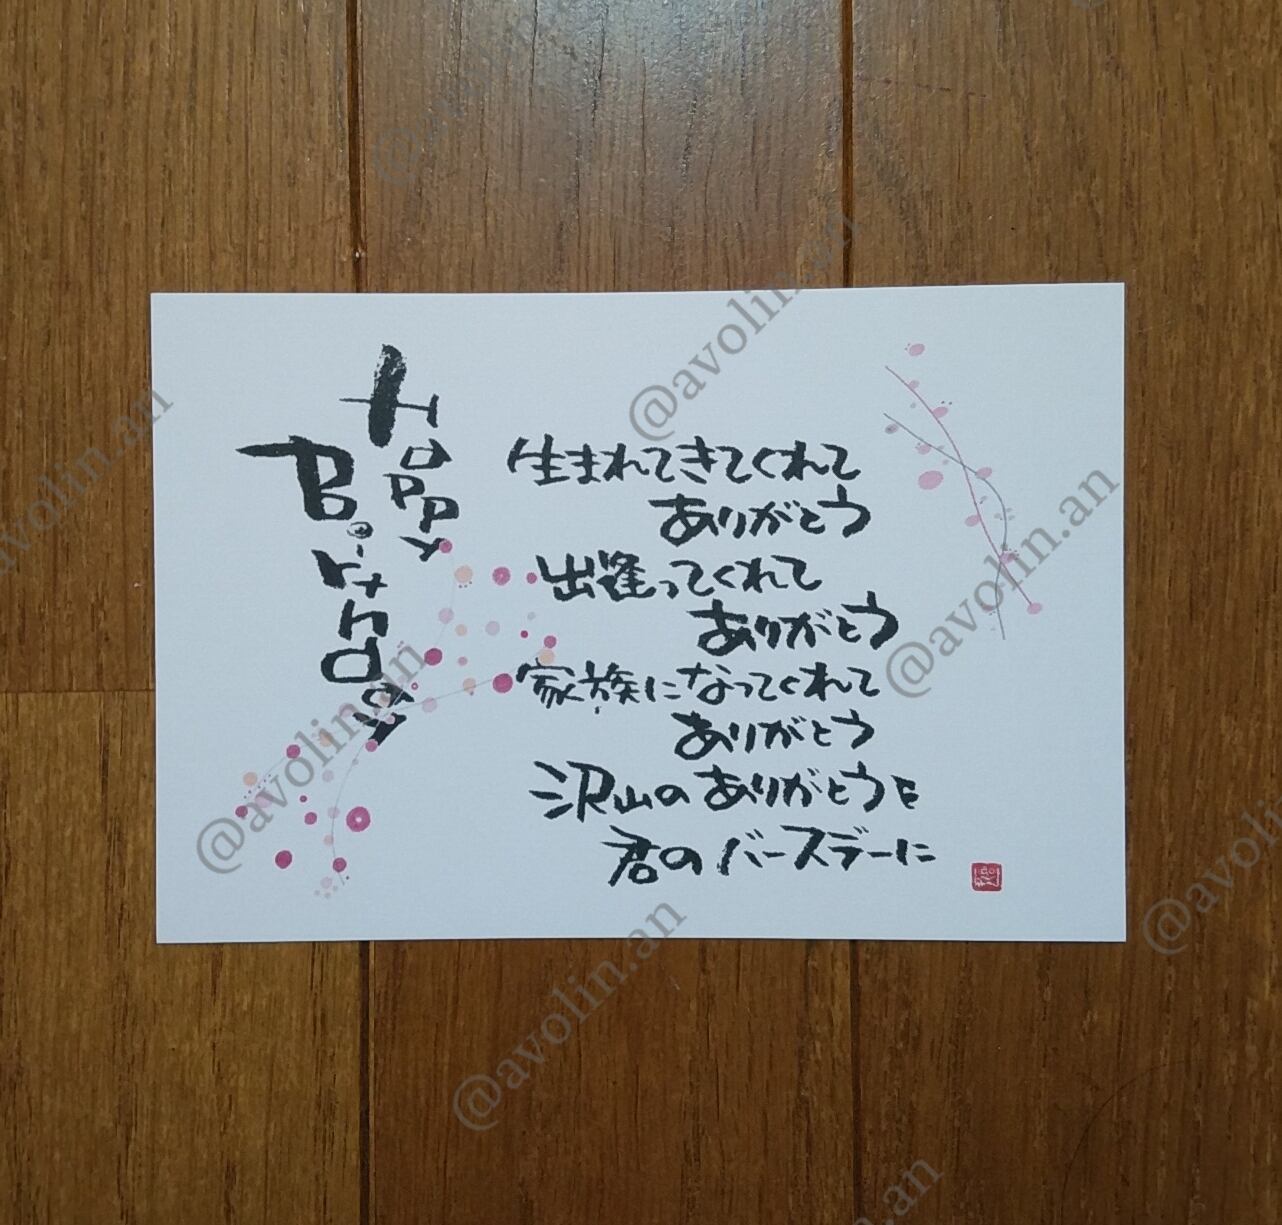 Happy
Birthday
生まれてきてくれて
ありがとう
出逢ってくれて
ありがとう
家族になってくれて
ありがとう
沢山のありがとうを
君のバースデーに
@avolin.an
@avolin.an
@avolin.an
@avolin.an
@avolin.an
@avolin.an
@avolin.an